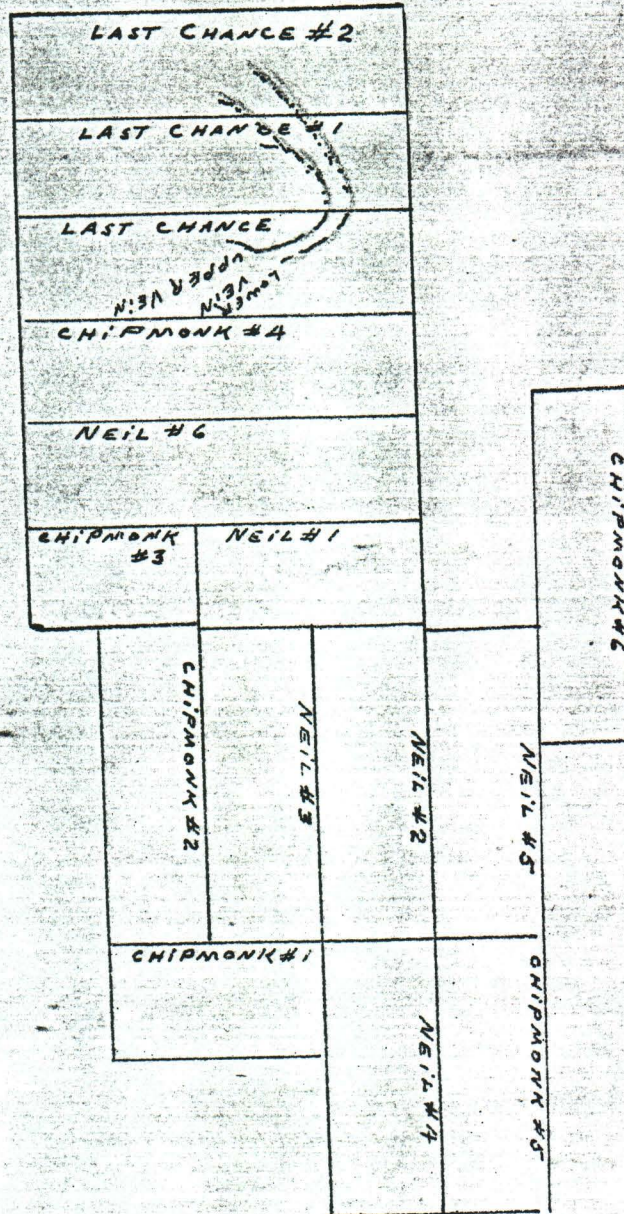 LAST CHANCE #2
LAST CHANCE #1
LAST CHANCE
UPPER VEIN
LOWER
VEIN
CHIPMONK #4
NEIL #6
CHIPMONK
#3
NEIL #1
CHIPMONK #6
CHIPMONK #2
NEIL #3
NEIL #2
NEIL #5
CHIPMONK #1
NEIL #4
CHIPMONK #5